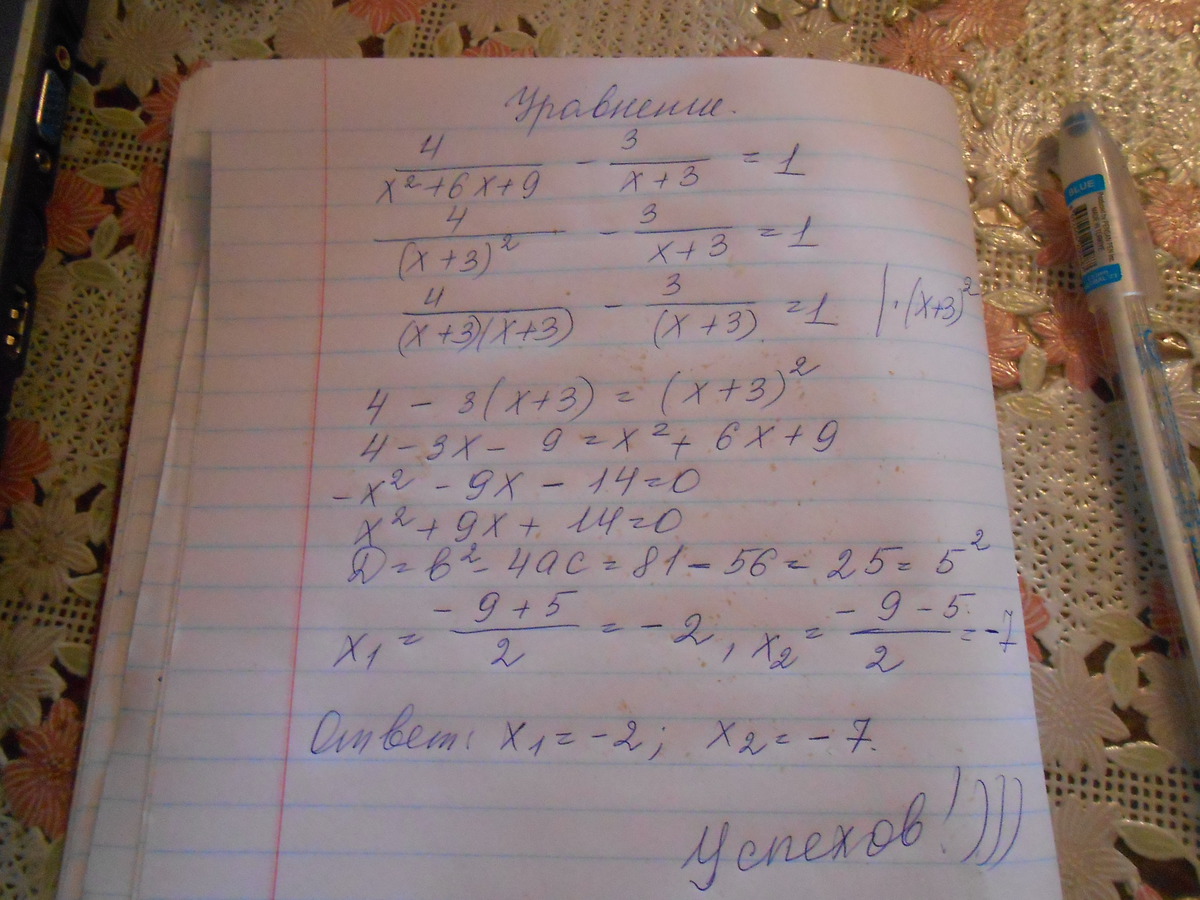 Уравнение.
4/(x²+6x+9) - 3/(x+3) = 1
4/(x+3)² - 3/(x+3) = 1
4/((x+3)(x+3)) - 3/(x+3) = 1 | ·(x+3)²
4 - 3(x+3) = (x+3)²
4 - 3x - 9 = x² + 6x + 9
-x² - 9x - 14 = 0
x² + 9x + 14 = 0
D = b² - 4ac = 81 - 56 = 25 = 5²
x₁ = (-9+5)/2 = -2, x₂ = (-9-5)/2 = -7
Ответ: x₁ = -2; x₂ = -7.
Успехов!)))
BLUE